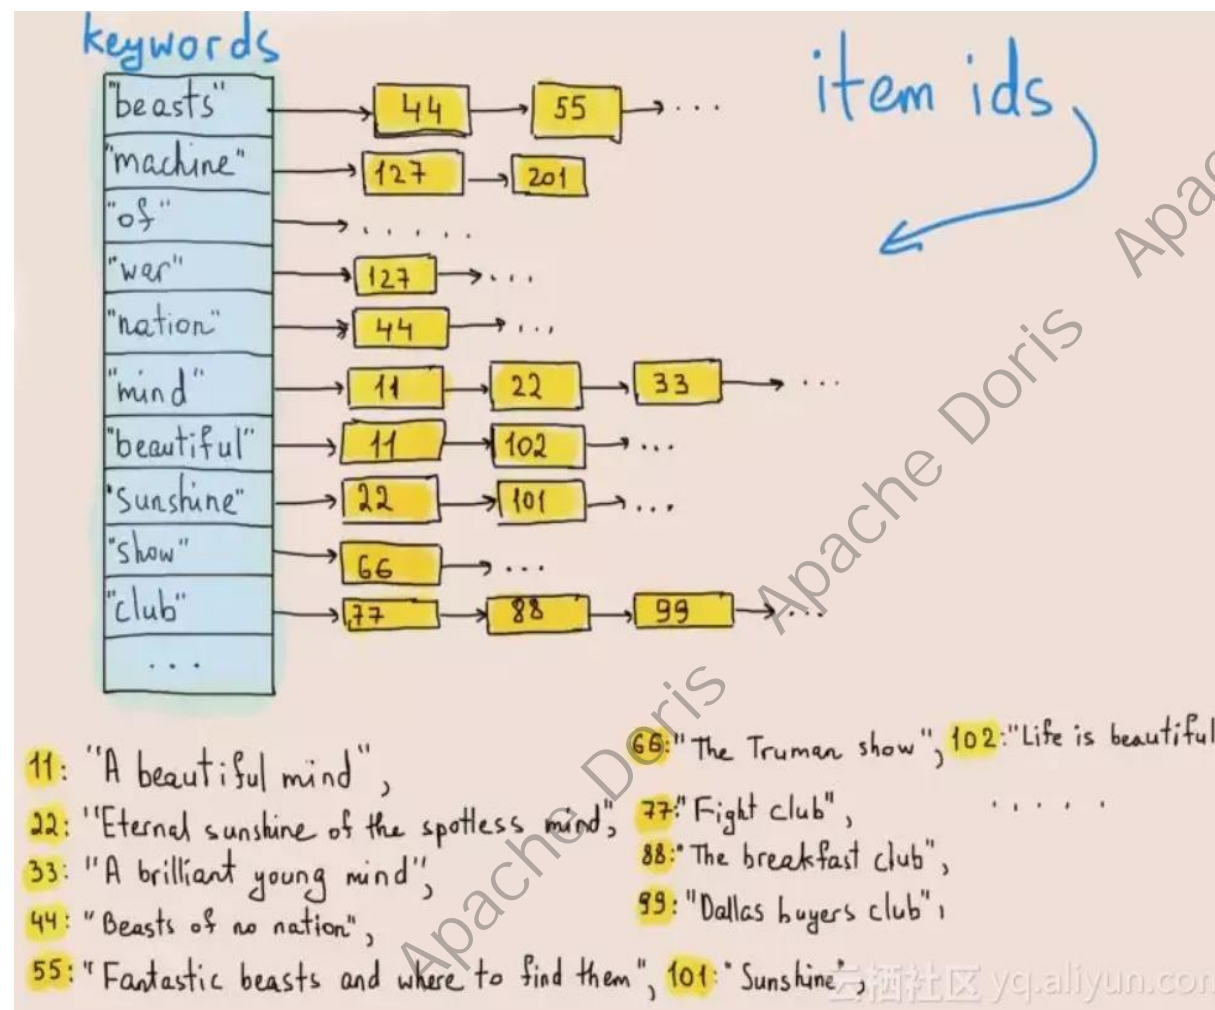 keywords
item ids
"beasts" 44 55 ...
"machine" 127 201
"of" .....
"war" 127 ...
"nation" 44 ...
"mind" 11 22 33 ...
"beautiful" 11 102 ...
"sunshine" 22 101 ...
"show" 66 ...
"club" 77 88 99 ...
...
11: "A beautiful mind",
22: "Eternal sunshine of the spotless mind",
33: "A brilliant young mind",
44: "Beasts of no nation",
55: "Fantastic beasts and where to find them", 101: "Sunshine",
66: "The Truman show", 102: "Life is beautiful
77: "Fight club", .....
88: "The breakfast club",
99: "Dallas buyers club",
Apache Doris
Apache Doris
Apac
云栖社区 yq.aliyun.com